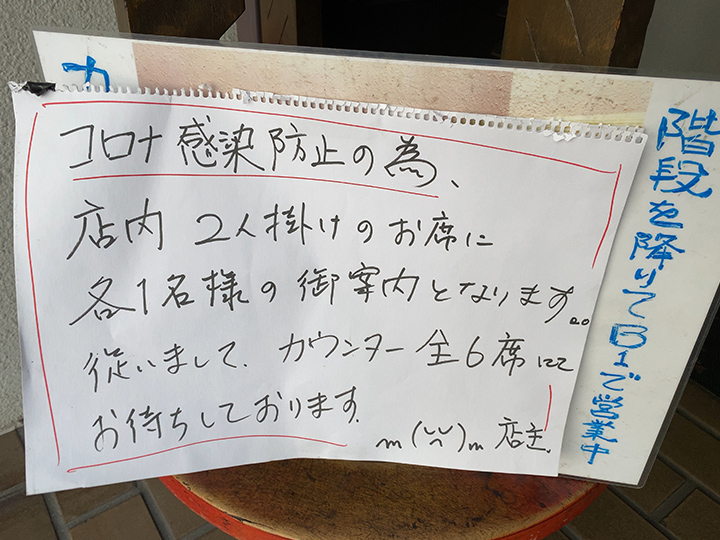 コロナ感染防止の為、
店内 2人掛けのお席に
各1名様の御案内となります。
従いまして、カウンター全6席にて
お待ちしております。
m(__)m 店主.
カ
階段を降りてB1で営業中